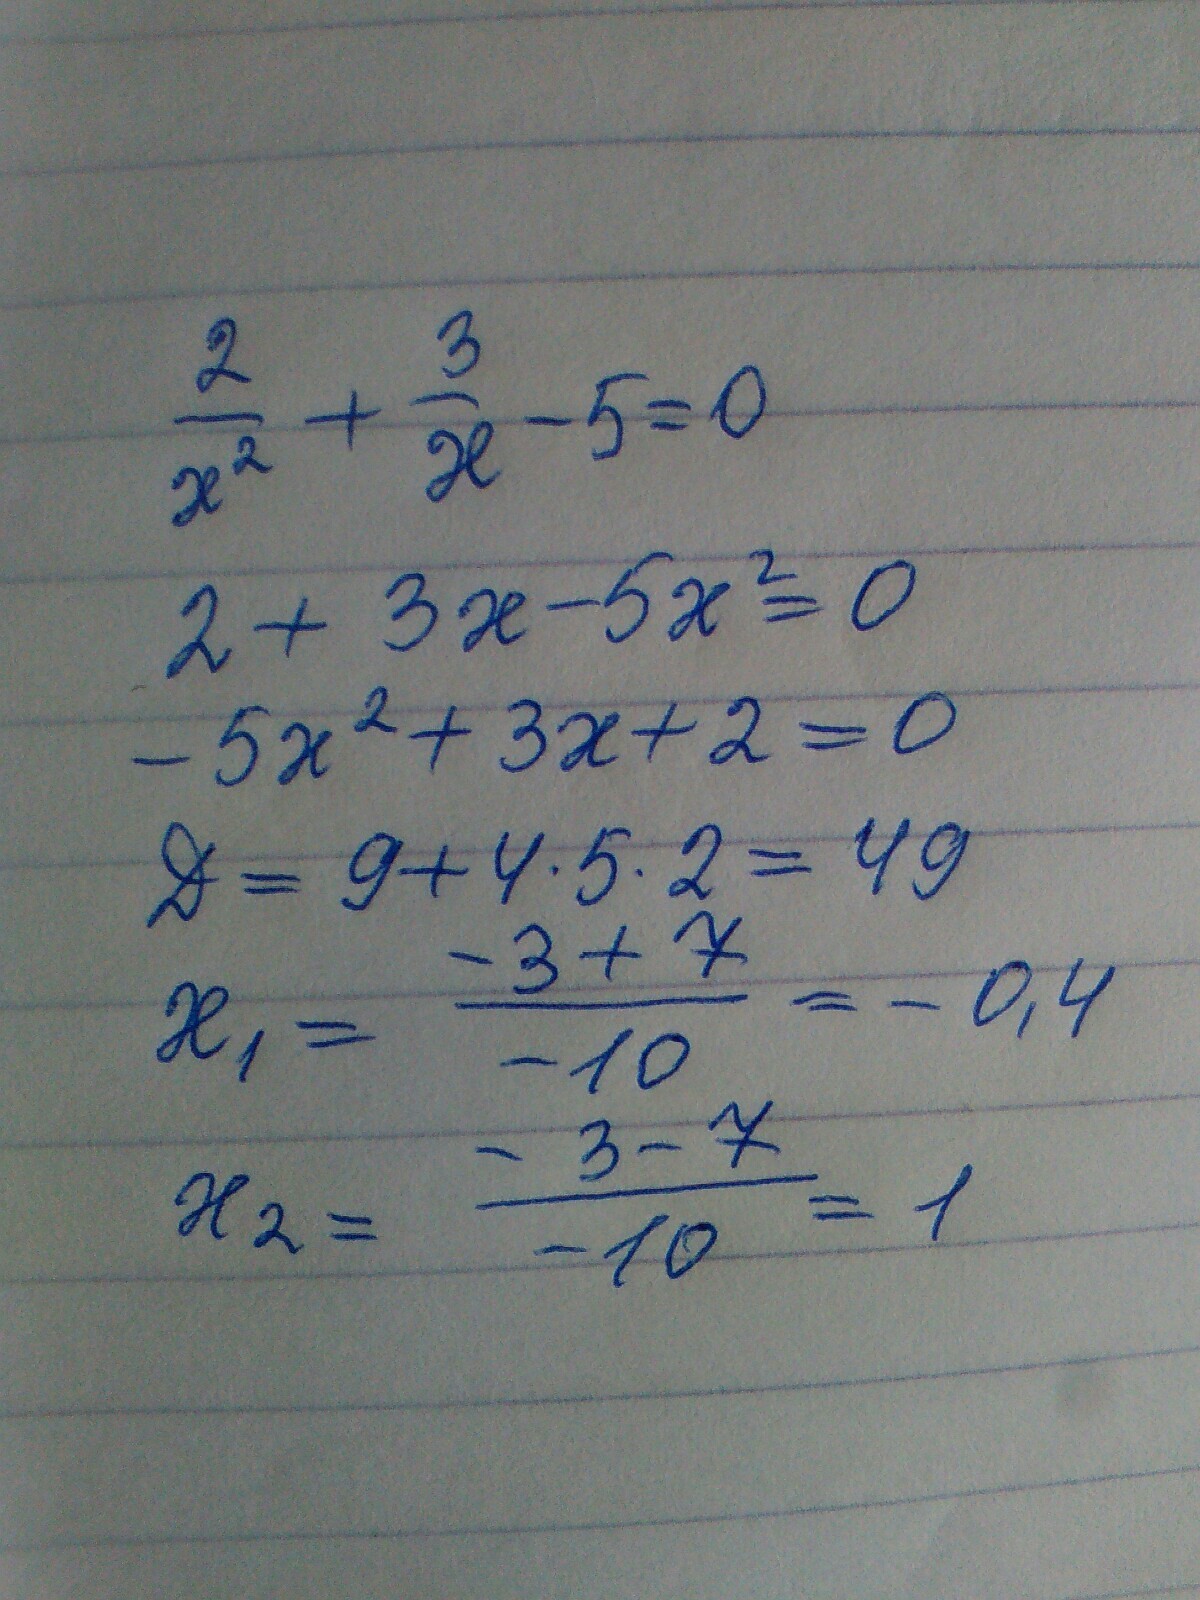 2/x² + 3/x - 5 = 0
2 + 3x - 5x² = 0
- 5x² + 3x + 2 = 0
D = 9 + 4 · 5 · 2 = 49
x₁ = (-3 + 7)/(-10) = - 0,4
x₂ = (- 3 - 7)/(-10) = 1